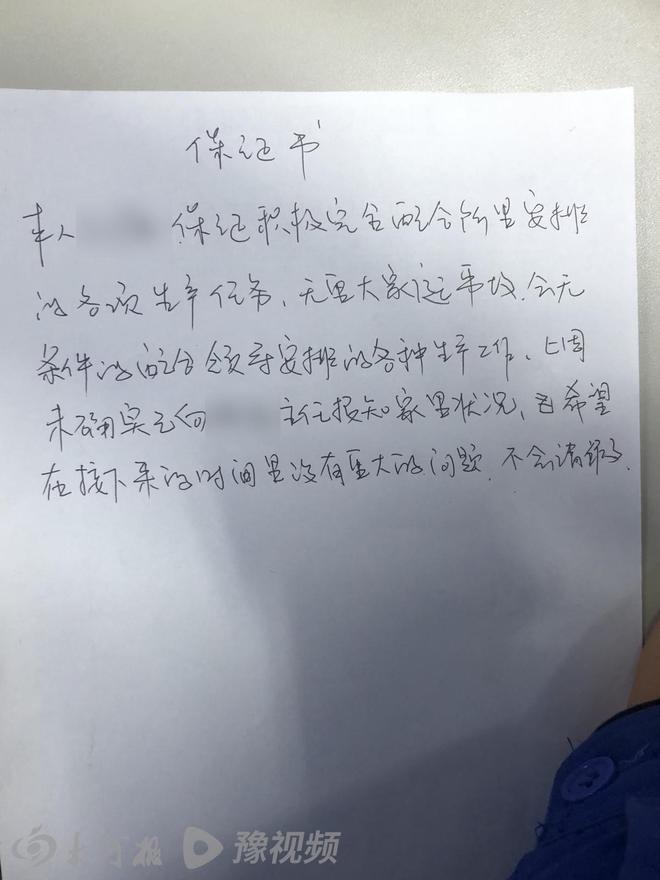 保证书
本人 保证积极完全配合所里安排
的各项生产任务、无重大家庭事故.会无
条件的配合领导安排的各种生产工作、上周
末确实已向 主任报知家里状况、也希望
在接下来的时间里没有重大的问题.不会请假了.
大河报 豫视频